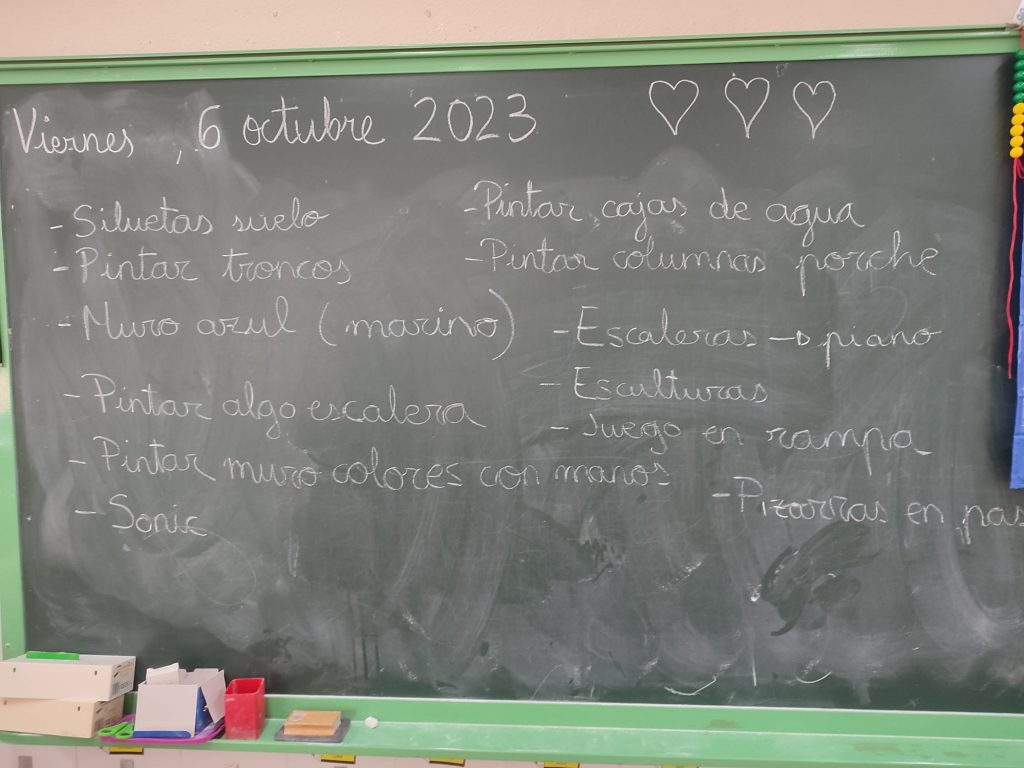 Viernes, 6 octubre 2023
- Siluetas suelo
- Pintar troncos
- Muro azul (marino)
- Pintar algo escalera
- Pintar muro colores con manos
- Sonic
- Pintar cajas de agua
- Pintar columnas porche
- Escaleras → piano
- Esculturas
- Juego en rampa
- Pizarras en pas